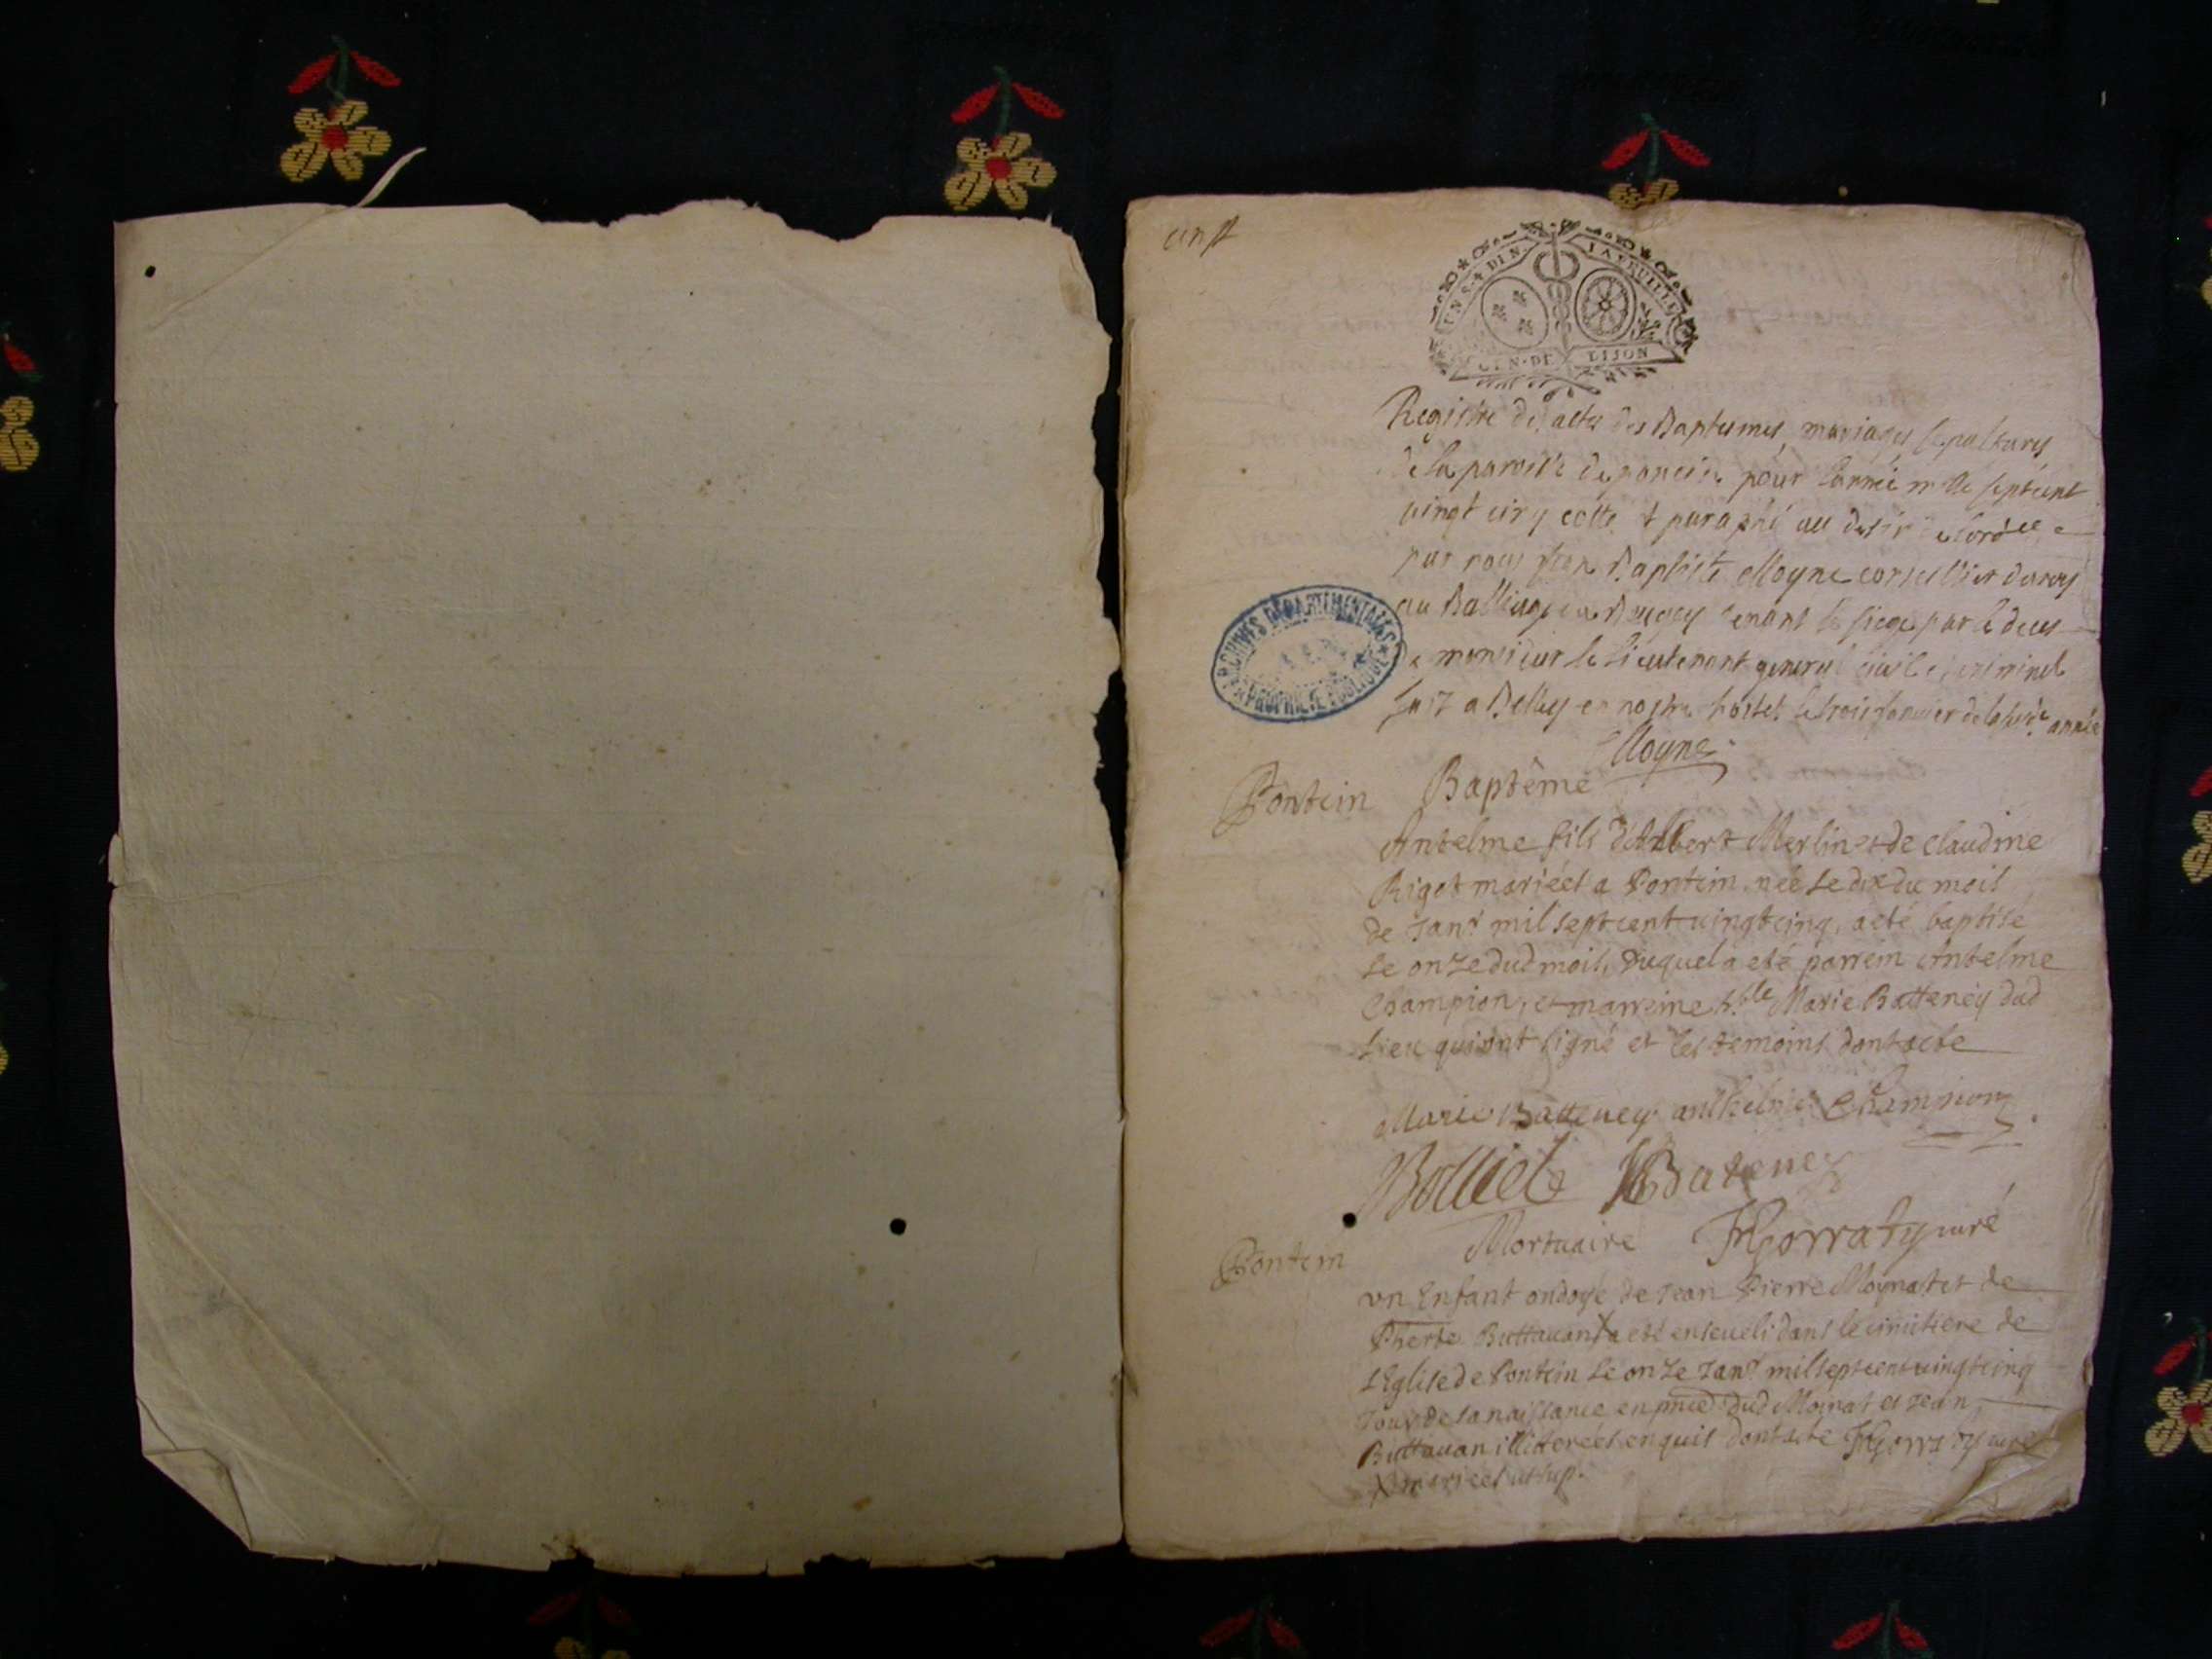 UN S. 4 DEN LA FEUILLE
GEN. DE DIJON
Registre des actes des Baptesmes mariages sepultures
de la paroisse de poncin pour l'année mille septcent
vingt cinq cotté & paraphé au desir de
par nous Jean Baptiste Moyne conseillier du roy
au Balliage de Bugey tenant le siege par le deces
de monsieur le Lieutenant general civil et criminel
fait a Belley en nostre hostel le trois janvier de la année
Moyne
Pontcin Baptême
Antelme fils d'Albert Merlin et de claudine
Rigot mariéés a Pontcin, néé le dix du mois
de Janr mil septcent vingtcinq, a eté baptisé
le onze dud mois, duquel a eté parrein Antelme
Champion, et marreine hble Marie Batteney dud
Lieu qui ont signé et les temoins dont acte
Marie Batteney anthelme Champion
Bolliet Bateney
Pontcin Mortuaire Gorraty curé
vn Enfant ondoyé de Jean Pierre Moynat et de
Buttauan X a eté enseueli dans le cimitiere de
L'Eglise de Pontcin le onze Janr mil septcent vingtcinq
Jour de sa naissance en pnce dud Moinat et Jean
Buttauan illiterées enquis dont acte Gorraty curé
X mariées ut sup.
ARCHIVES DÉPARTEMENTALES
PROPRIÉTÉ PUBLIQUE